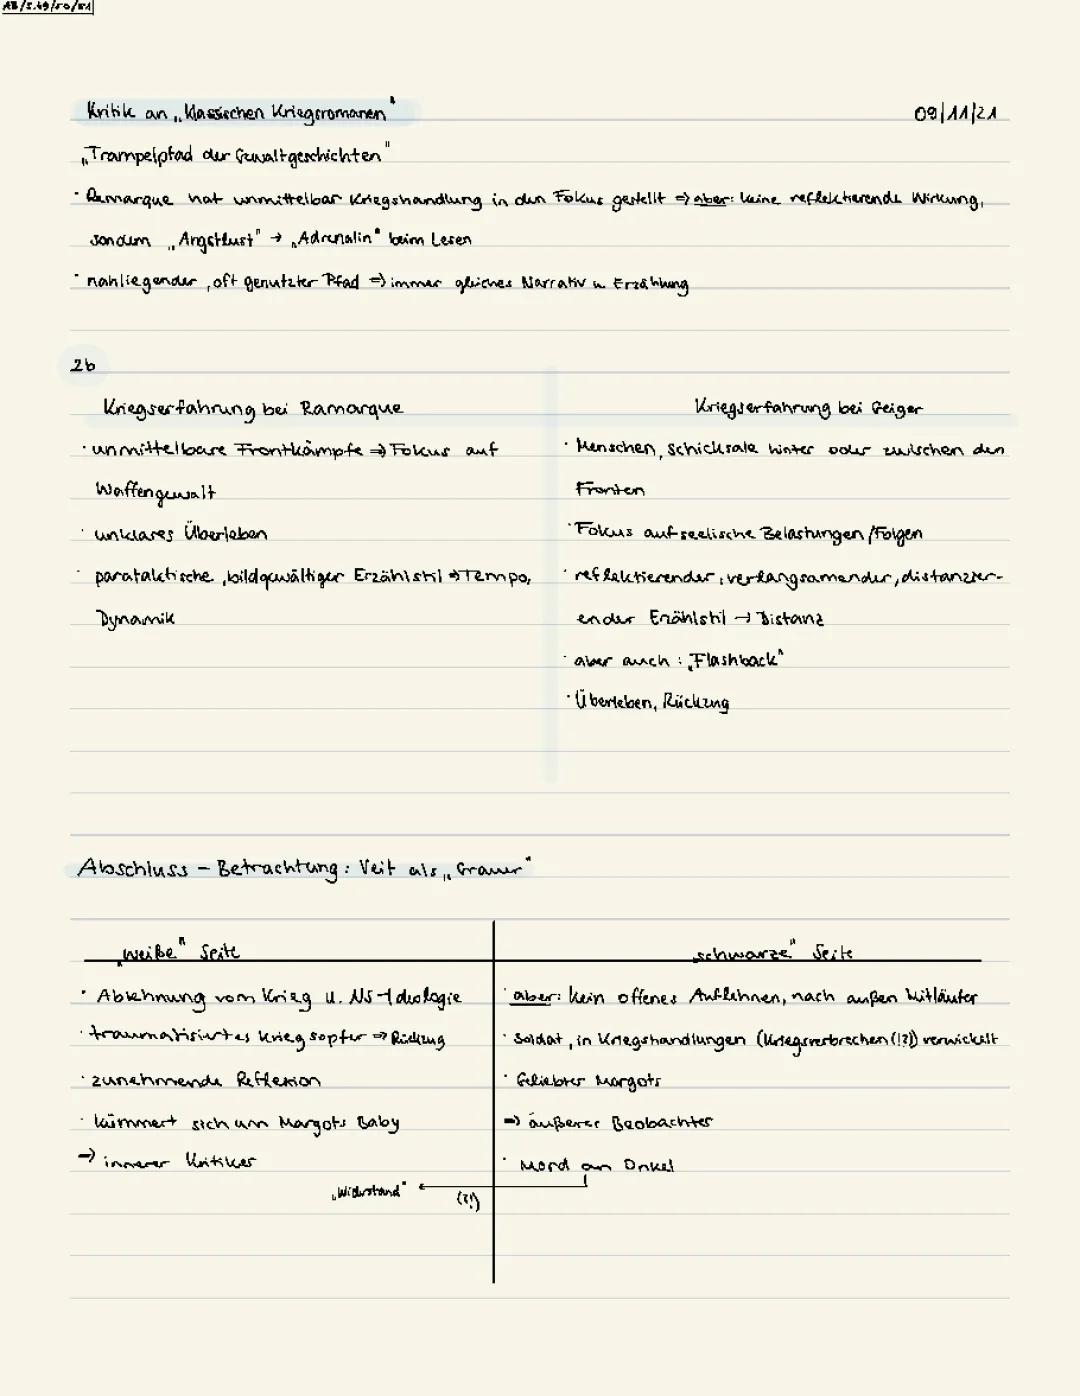 AB/S.49/50/51
Kritik an „Klassischen Kriegsromanen"
09/11/21
„Trampelpfad der Gewaltgeschichten"
· Remarque hat unmittelbar Kriegshandlung in den Fokus gestellt => aber: keine reflektierende Wirkung,
sondern „Angstlust" → „Adrenalin" beim Lesen
· nahliegender, oft genutzter Pfad => immer gleiches Narrativ u. Erzählung
2b
Kriegserfahrung bei Ramarque
· unmittelbare Frontkämpfe => Fokus auf
Waffengewalt
· unklares Überleben
· parataktische, bildgewältiger Erzählstil => Tempo,
Dynamik
Kriegserfahrung bei Geiger
· Menschen, Schicksale hinter oder zwischen den
Fronten
· Fokus auf seelische Belastungen/Folgen
· reflektierender, verlangsamender, distanzier-
ender Erzählstil → Distanz
· aber auch: „Flashback"
· Überleben, Rückzug
Abschluss - Betrachtung: Veit als „Grauer"
„weiße" Seite
· Ablehnung vom Krieg u. NS-Ideologie
· traumatisiertes Kriegsopfer => Rückzug
· zunehmende Reflexion
· kümmert sich um Margots Baby
→ innerer Kritiker
„Widerstand"
(?!)
„schwarze" Seite
· aber: kein offenes Auflehnen, nach außen Mitläufer
· Soldat, in Kriegshandlungen (Kriegsverbrechen(!?)) verwickelt
· Geliebter Margots
=> äußerer Beobachter
· Mord an Onkel